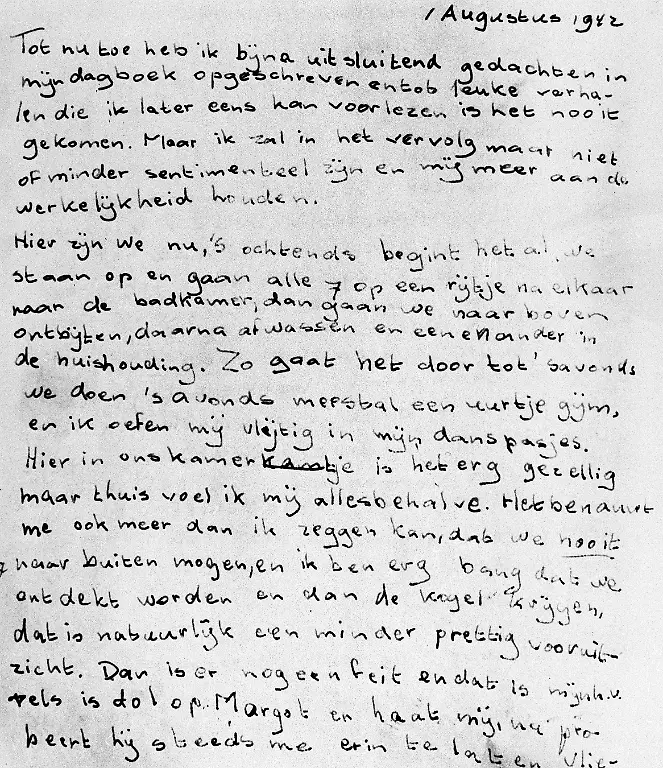 1 Augustus 1942
Tot nu toe heb ik bijna uitsluitend gedachten in
mijn dagboek opgeschreven en tot leuke verha-
len die ik later eens kan voorlezen is het nooit
gekomen. Maar ik zal in het vervolg maar niet
of minder sentimenteel zijn en mij meer aan de
werkelijkheid houden.
Hier zijn we nu, 's ochtends begint het al, we
staan op en gaan alle 7 op een rijtje na elkaar
naar de badkamer, dan gaan we naar boven
ontbijten, daarna afwassen en een en ander in
de huishouding. Zo gaat het door tot 's avonds
we doen 's avonds meestal een uurtje gijm,
en ik oefen mij vlijtig in mijn danspasjes.
Hier in ons kamertje is het erg gezellig
maar thuis voel ik mij allesbehalve. Het benauwt
me ook meer dan ik zeggen kan, dat we nooit
naar buiten mogen, en ik ben erg bang dat we
ontdekt worden en dan de kogel krijgen,
dat is natuurlijk een minder prettig vooruit-
zicht. Dan is er nog een feit en dat is mijnh. v.
Pels is dol op Margot en haat mij, nu pro-
beert hij steeds me erin te laten vlie-